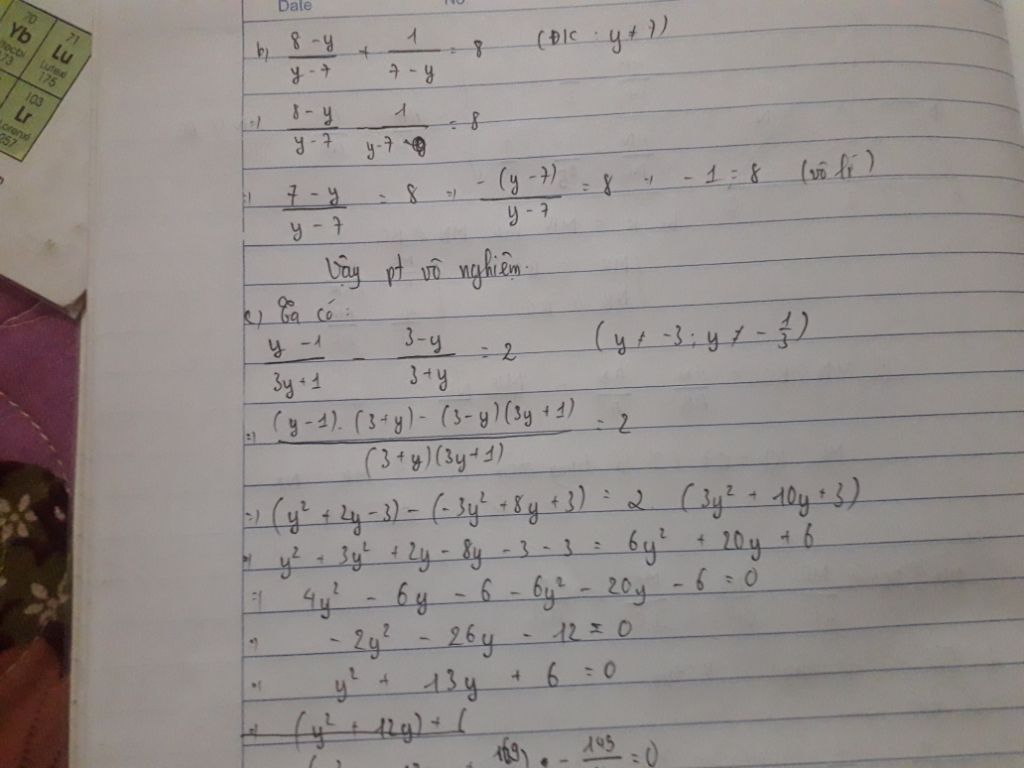 Date No
70
Yb
173
71
Lu
Lutexi
175
103
Lr
b, (8 - y)/(y - 7) + 1/(7 - y) = 8 (ĐK : y ≠ 7)
=> (8 - y)/(y - 7) - 1/(y - 7) = 8
=> (7 - y)/(y - 7) = 8 => (-(y - 7))/(y - 7) = 8 => - 1 = 8 (vô lí)
Vậy pt vô nghiệm.
c) Ta có :
(y - 1)/(3y + 1) - (3 - y)/(3 + y) = 2 (y ≠ -3 ; y ≠ - 1/3)
=> ((y - 1).(3 + y) - (3 - y)(3y + 1))/((3 + y)(3y + 1)) = 2
=> (y² + 2y - 3) - (-3y² + 8y + 3) = 2 (3y² + 10y + 3)
=> y² + 3y² + 2y - 8y - 3 - 3 = 6y² + 20y + 6
=> 4y² - 6y - 6 - 6y² - 20y - 6 = 0
=> - 2y² - 26y - 12 = 0
=> y² + 13y + 6 = 0
=> (y² + 12y) + (
169 - 145 = 0